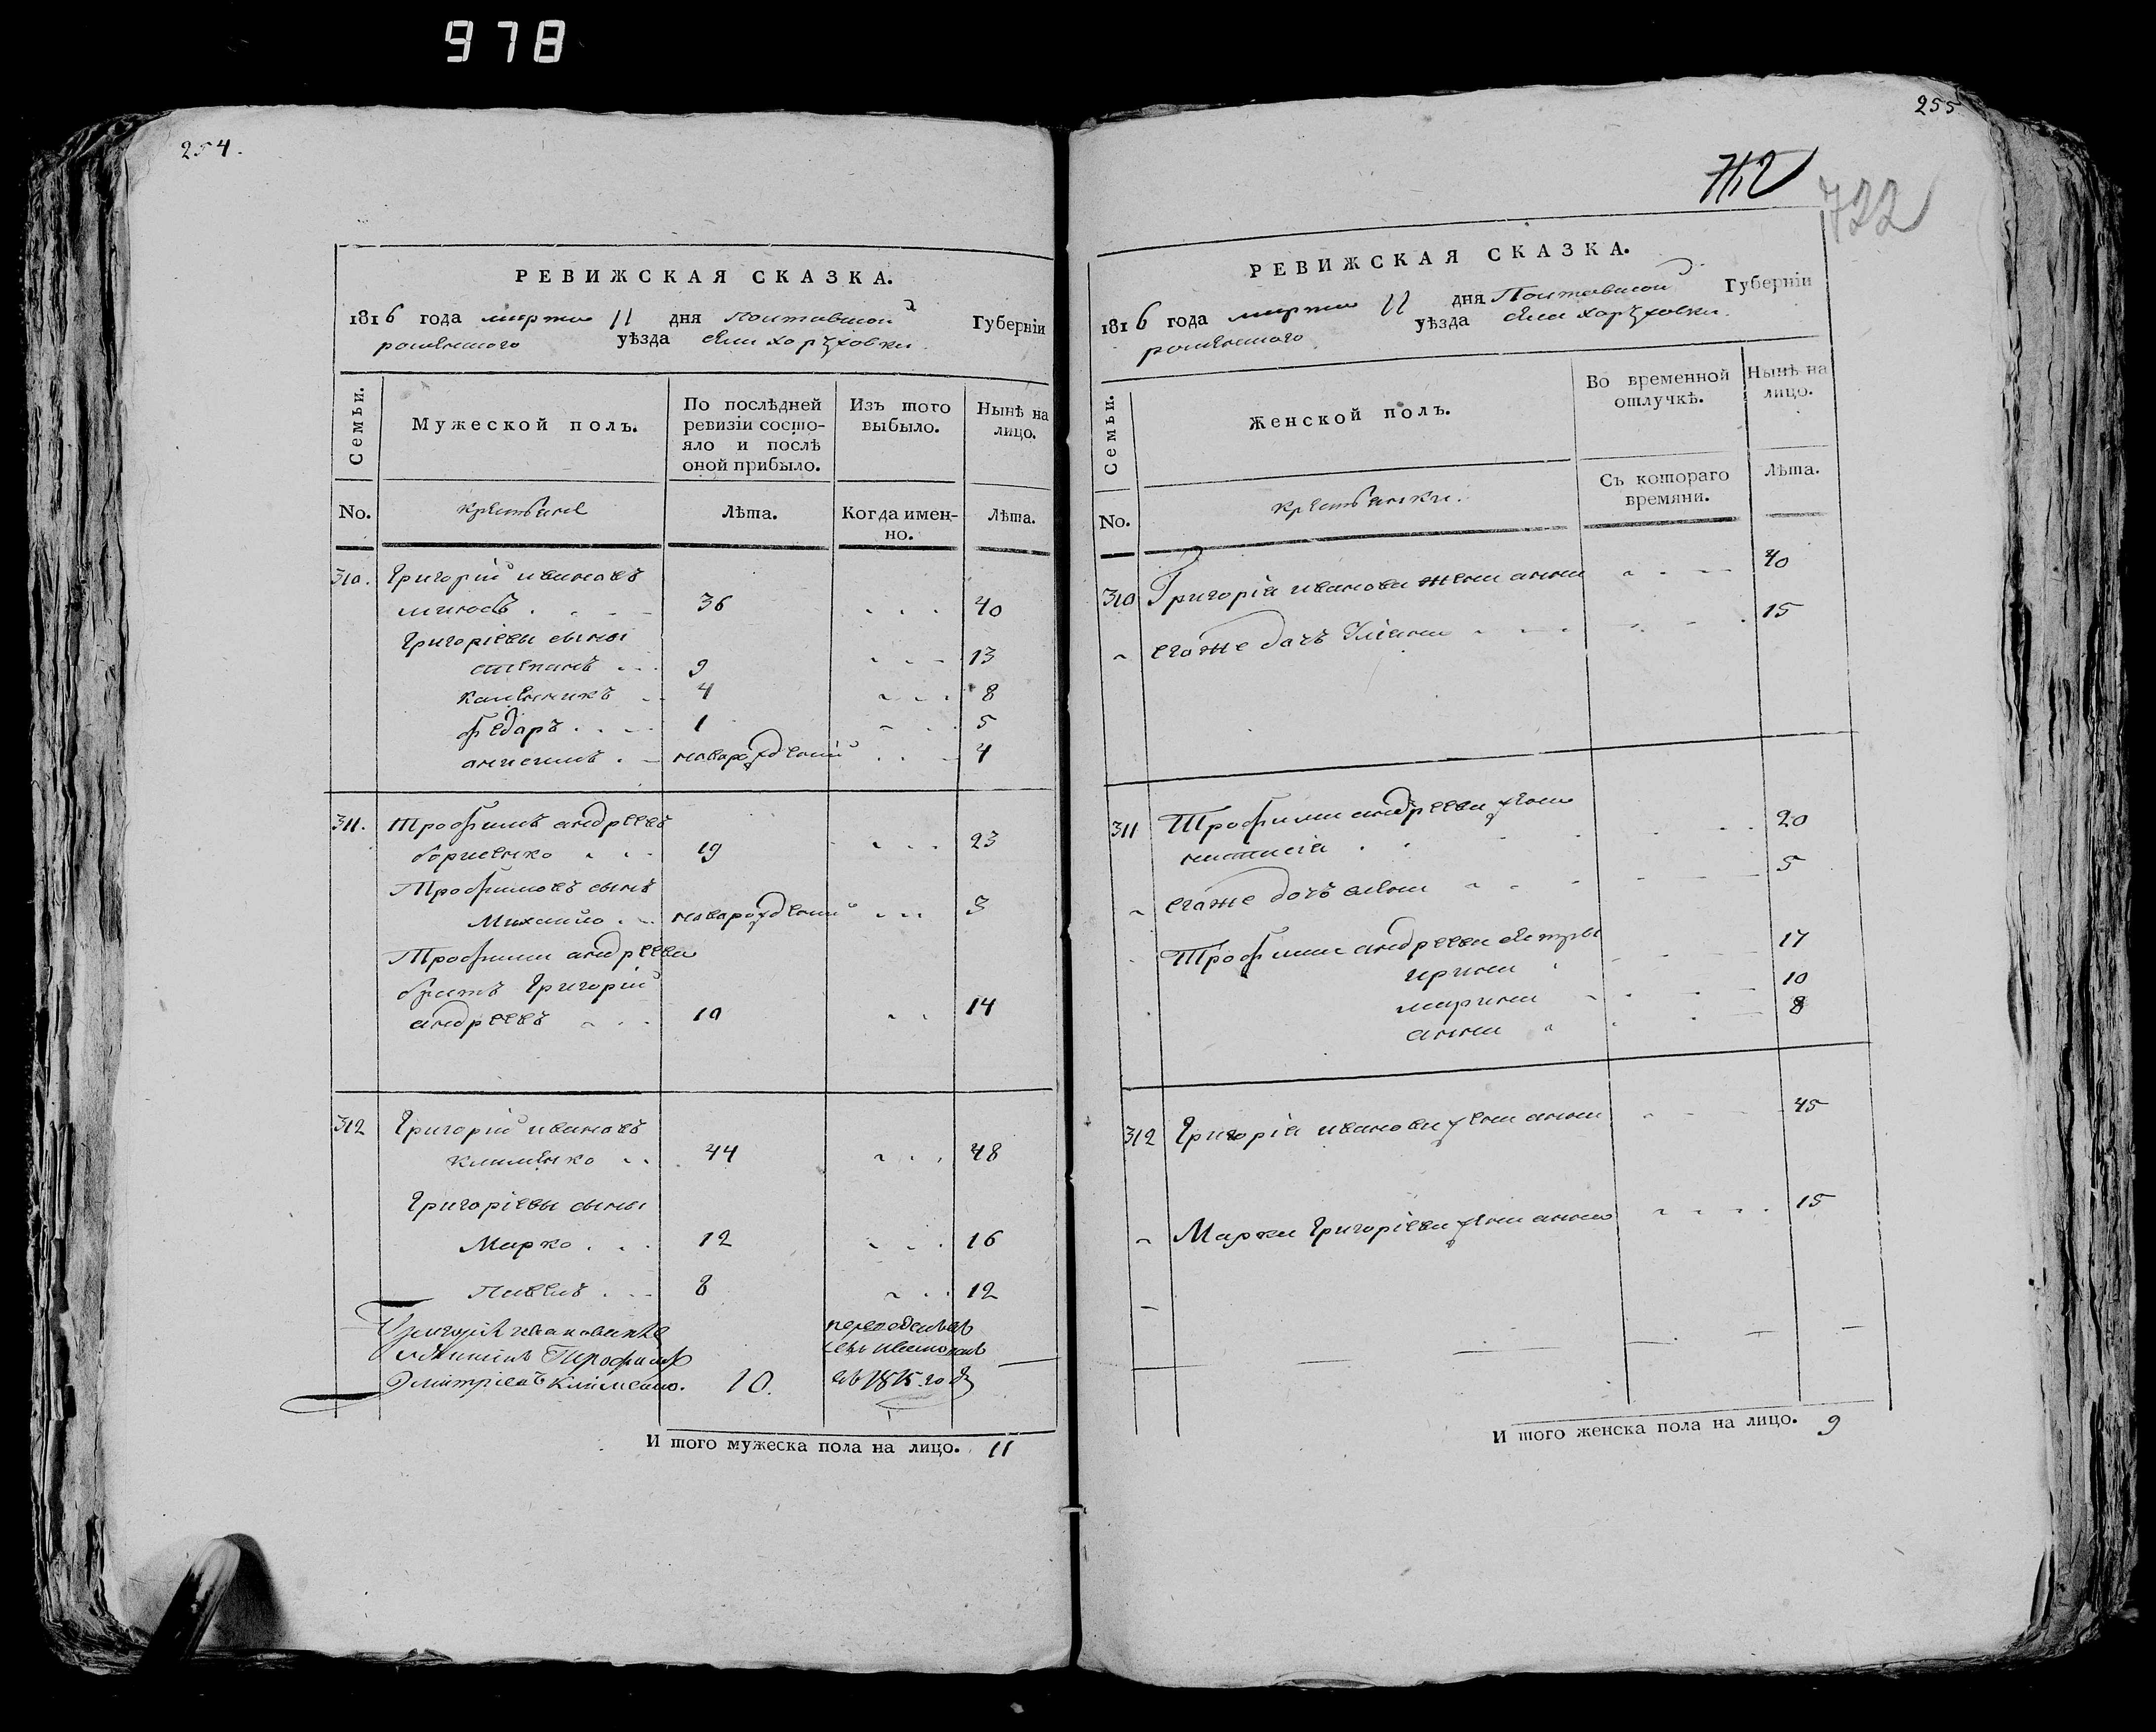 978
254.
РЕВИЖСКАЯ СКАЗКА.
1816 года марта 11 дня Полтавской Губерніи
роменского уѣзда села хоружовки
Семьи.
Мужеской полъ.
По послѣдней
ревизіи состо-
яло и послѣ
оной прибыло.
Изъ того
выбыло.
Нынѣ на
лицо.
No.
крестьяне
Лѣта.
Когда имен-
но.
Лѣта.
310. Григорій ивановъ
36 40
Григоріевы сыны
степанъ 9 13
4 8
федоръ 1 5
новарожденій 4
311. Трофимъ андреевъ
борисенко 19 23
Трофимовъ сынъ
Михайло новарожденій 3
Трофима андреева
братъ Григорій
андреевъ 10 14
312 Григорій ивановъ
клименко 44 48
Григоріевы сыны
Марко 12 16
Павелъ 8 12
Трофимъ
Дмитріевъ Клименко. 10. въ 1815 годѣ
И того мужеска пола на лицо. 11
255
712
722
РЕВИЖСКАЯ СКАЗКА.
1816 года марта 11 дня Полтавской Губерніи
роменского уѣзда села хоружовки.
Семьи.
Женской полъ.
Во временной
отлучкѣ.
Нынѣ на
лицо.
No.
крестьянки.
Съ котораго
времяни.
Лѣта.
310 Григорія иванова жена анна 40
егоже дочъ 15
311 Трофима андреева жена
настасія 20
егоже дочъ олена 5
Трофима андреева сестры
ирина 17
марина 10
анна 8
312 Григорія иванова жена анна 45
Марка Григоріева жена анна 15
И того женска пола на лицо. 9